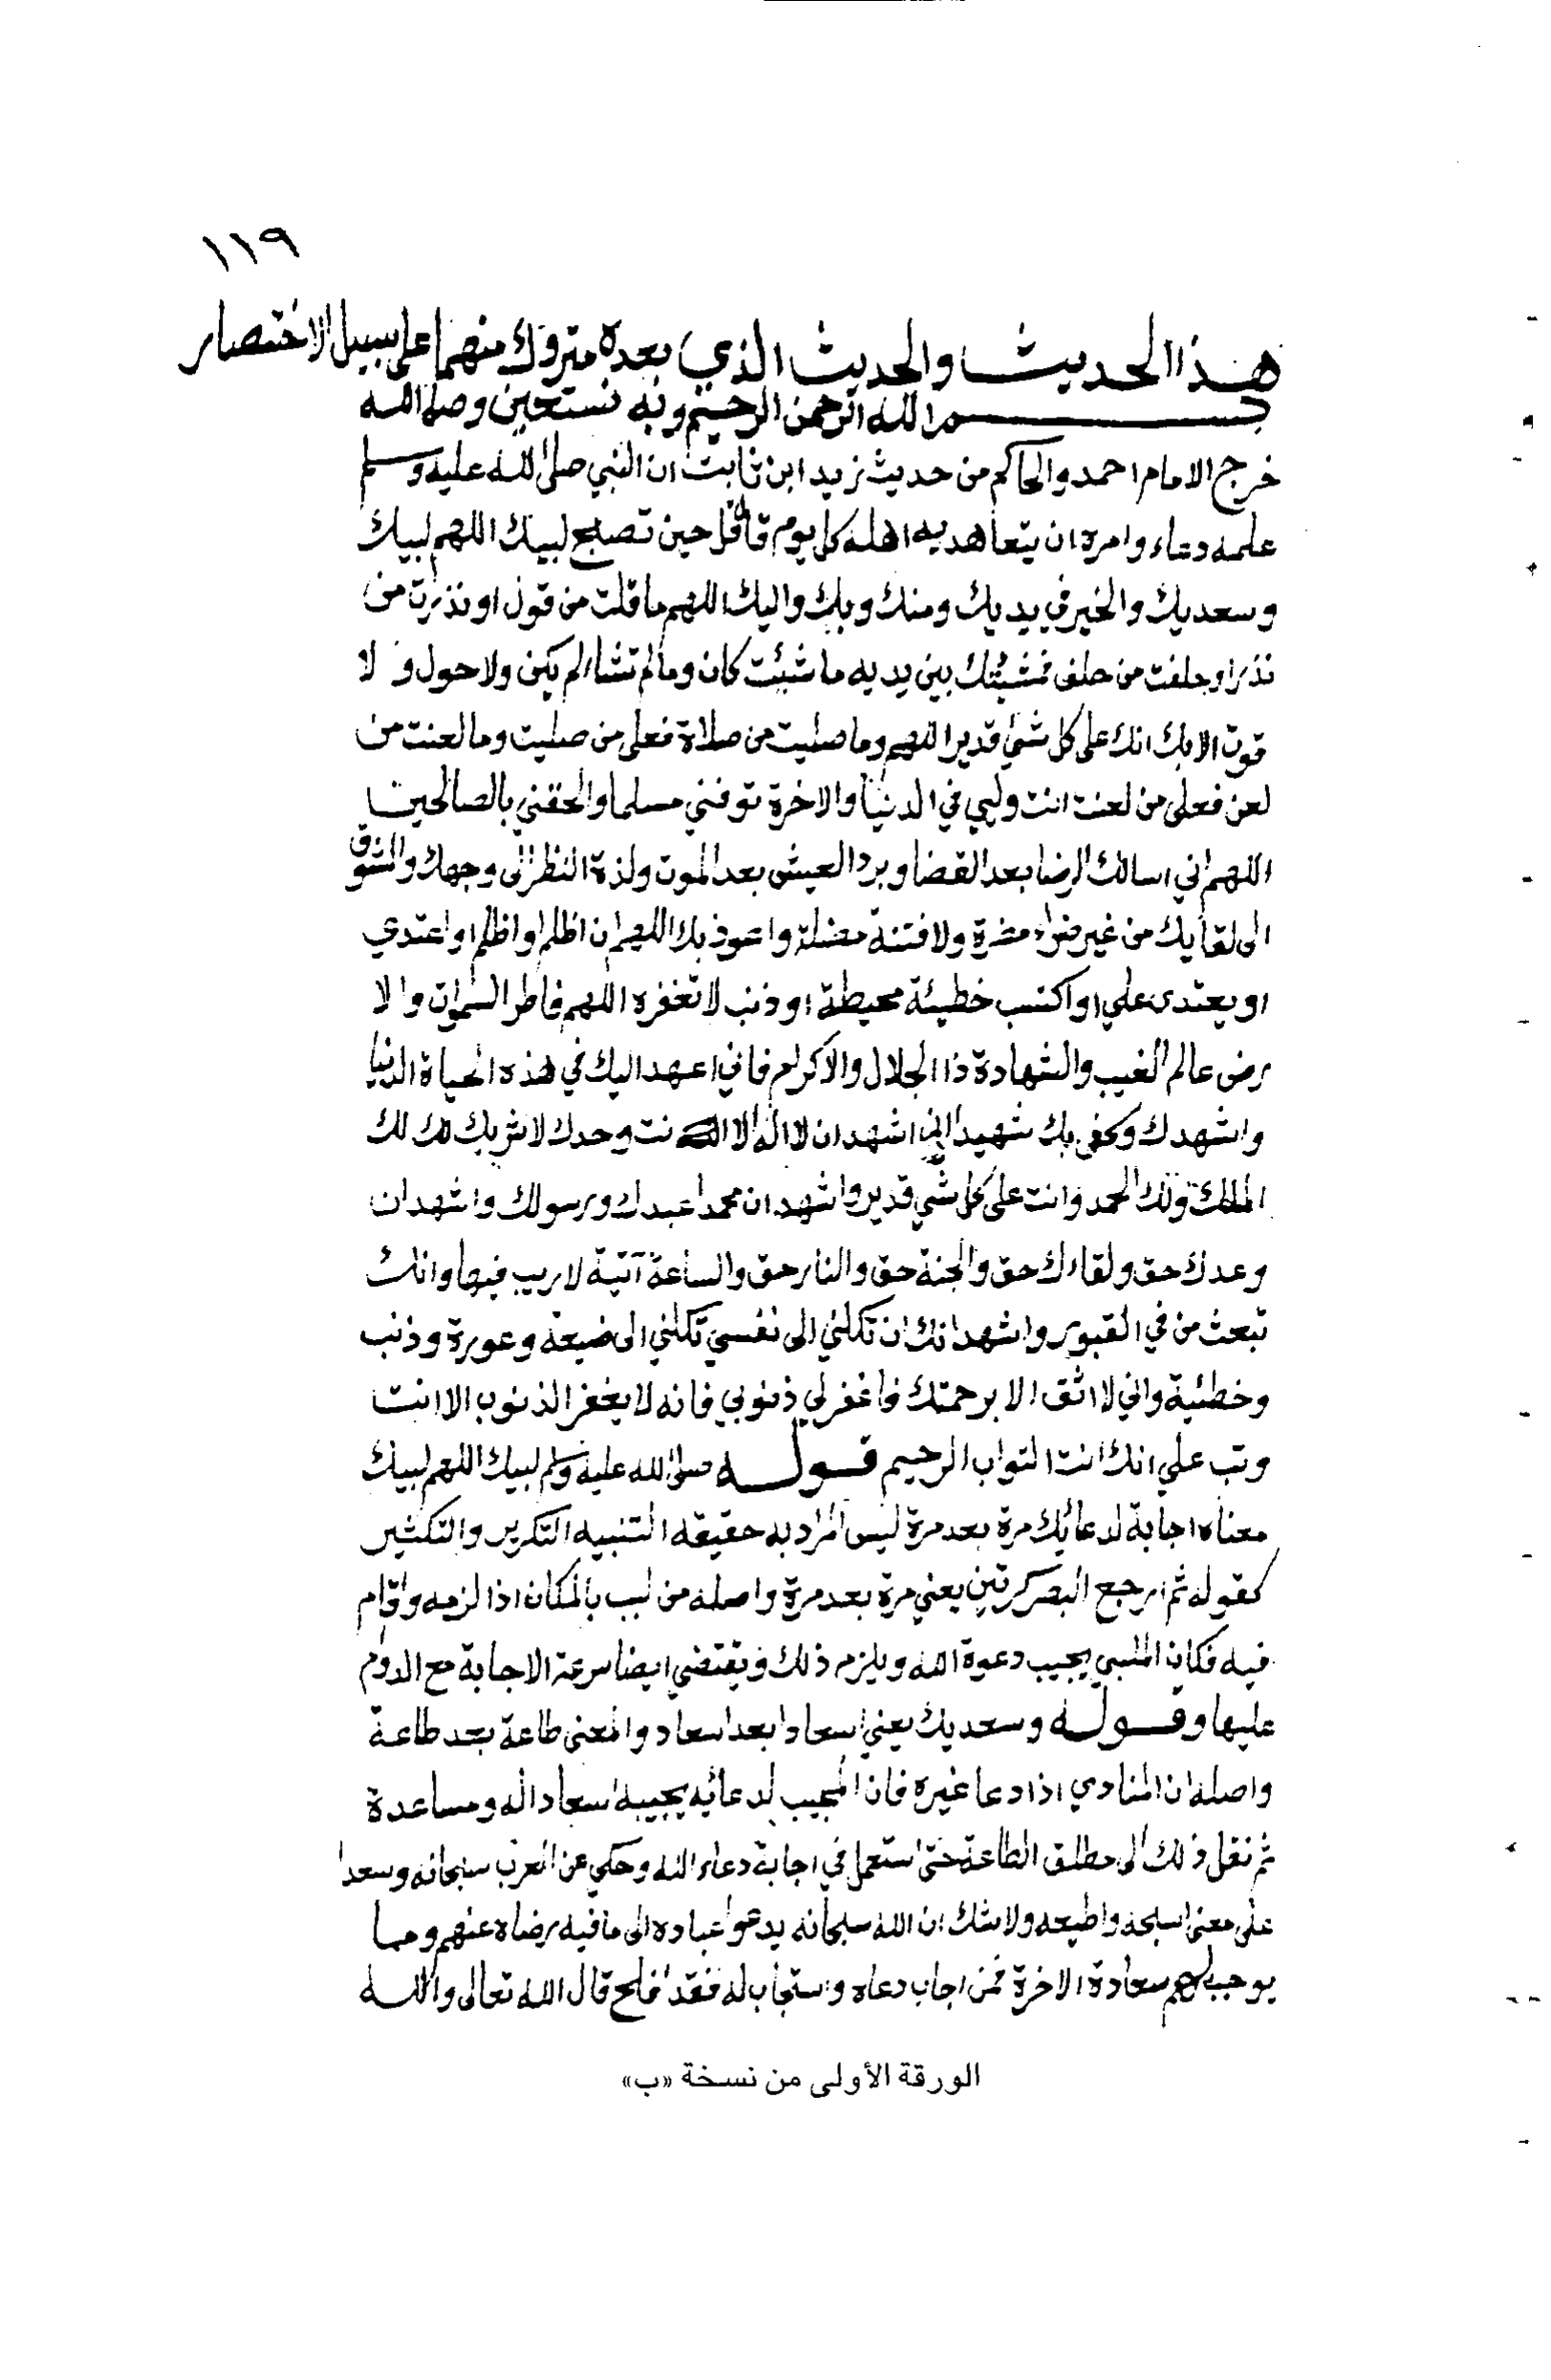 ١١٩
هذا الحديث والحديث الذي بعده متروك منهما على سبيل الاختصار
بسم الله الرحمن الرحيم وبه نستعين وصلى الله
خرج الامام احمد والحاكم من حديث زيد ابن ثابت ان النبي صلى الله عليه وسلم
علمه دعاء وامره ان يتعاهد به اهله كل يوم قال قل حين تصبح لبيك اللهم لبيك
وسعديك والخير في يديك ومنك وبك واليك اللهم ما قلت من قول او نذرت من
نذر او حلفت من حلف فمشيئتك بين يديه ما شئت كان وما لم تشا لم يكن ولا حول ولا
قوة الا بك انك على كل شئ قدير اللهم وما صليت من صلاة فعلى من صليت وما لعنت من
لعن فعلى من لعنت انت وليي في الدنيا والاخرة توفني مسلما والحقني بالصالحين
اللهم اني اسالك الرضا بعد القضا وبرد العيش بعد الموت ولذة النظر الى وجهك والشوق
الى لقايك من غير ضراء مضرة ولا فتنة مضلة واعوذ بك اللهم ان اظلم او اظلم او اعتدي
او يعتدى علي او اكتسب خطيئة محيطة او ذنب لا تغفره اللهم فاطر السموات والا
رض عالم الغيب والشهادة ذا الجلال والاكرام فاني اعهد اليك في هذه الحياة الدنيا
واشهدك وكفى بك شهيدا اني اشهد ان لا اله الا انت وحدك لا شريك لك لك
الملك ولك الحمد وانت على كل شي قدير واشهد ان محمدا عبدك ورسولك واشهد ان
وعدك حق ولقاءك حق والجنة حق والنار حق والساعة آتية لا ريب فيها وانك
تبعث من في القبور واشهد انك ان تكلني الى نفسي تكلني الى ضيعة وعورة وذنب
وخطئية واني لا اثق الا برحمتك فاغفر لي ذنوبي فانه لا يغفر الذنوب الا انت
وتب علي انك انت التواب الرحيم قوله صلى الله عليه وسلم لبيك اللهم لبيك
معناه اجابة لدعائك مرة بعد مرة ليس المراد به حقيقه التنبيه التكرير والتكثير
كقوله ثم ارجع البصر كرتين يعني مرة بعد مرة واصله من لبب بالمكان اذا لزمه واقام
فيه فكان الملبي يجيب دعوة الله ويلزم ذلك ويقتضي ايضا سرعة الاجابة مع الدوام
عليها وقوله وسعديك يعني اسعادا بعد اسعاد والمعنى طاعة بعد طاعة
واصله ان المنادي اذا دعا غيره فان المجيب لدعائه يجيبه اسعادا له ومساعدة
ثم نقل ذلك الى مطلق الطاعة حتى استعمل في اجابة دعاء الله وحكي عن العرب سبحانه وسعدا
على معنى اسبحه واطيعه ولا شك ان الله سبحانه يدعوا عباده الى ما فيه رضاه عنهم وما
يوجب لهم سعادة الاخرة فمن اجاب دعاه واستجاب له فقد افلح قال الله تعالى والله
الورقة الأولى من نسخة «ب»